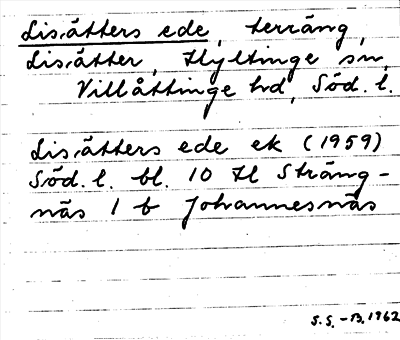 Lisätters ede, terräng,
Lisätter, Hyltinge sn,
Villåttinge hd, Söd. l.
Lisätters ede ek (1959)
Söd. l. bl. 10 H Sträng-
näs 1 b Johannesnäs
S.S. - B. 1962